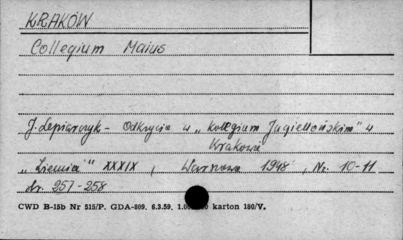 KRAKÓW
Collegium Maius
J. Lepiarczyk - Odkrycia w „Kolegium Jagiellońskim" w
Krakowie
„Ziemia" XXXIX, Warszawa 1948, Nr. 10-11
str. 257-258
CWD B-15b Nr 515/P. GDA-809. 6.3.59. karton 180/V.